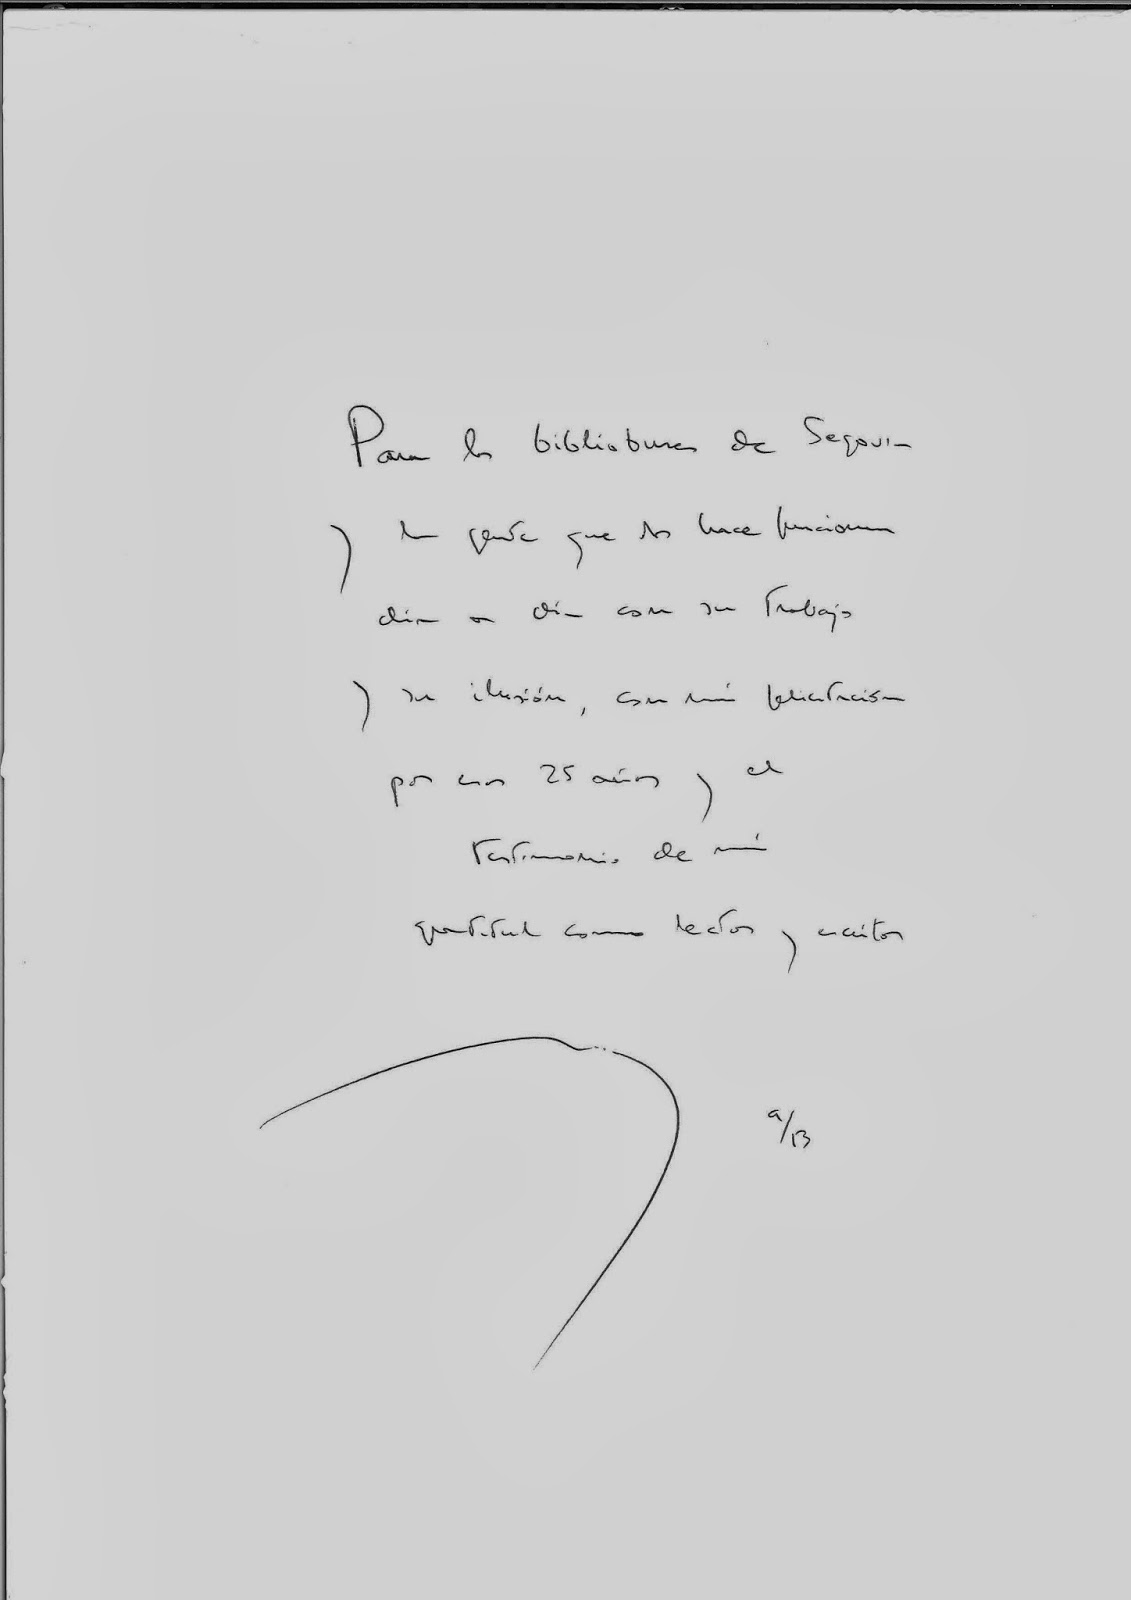 Para los bibliobuses de Segovia
y la gente que los hace funcionar
día a día con su trabajo
y su ilusión, con mi felicitación
por esos 25 años y el
testimonio de mi
gratitud como lector y escritor
9/13